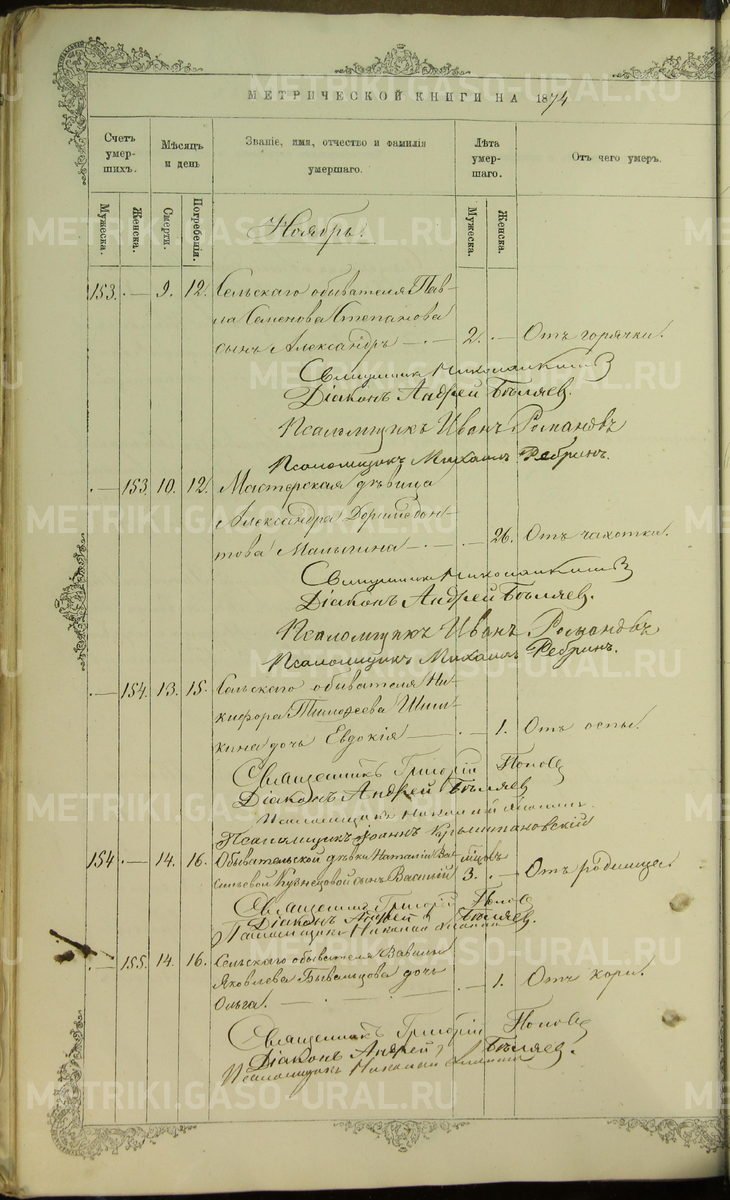 МЕТРИЧЕСКОЙ КНИГИ НА 1874
Счетъ умершихъ.
Мужеска.
Женска.
Мѣсяцъ и день
Смерти.
Погребенія.
Званіе, имя, отчество и фамилія умершаго.
Лѣта умершаго.
Мужеска.
Женска.
Отъ чего умеръ.
Ноябрь.
153. — 9. 12. Сельскаго обывателя Пав-
ла Семенова Степанова
сынъ Александръ — 2. — Отъ горячки.
Священникъ
Діаконъ Андрей Бѣляев.
Псаломщикъ Иванъ Романовъ
Псаломщикъ Михаилъ Ребринъ.
— 153. 10. 12. Мастерская дѣвица
Александра Доримедон-
това Малыгина — — 26. Отъ чахотки.
Священникъ
Діаконъ Андрей Бѣляев.
Псаломщикъ Иванъ Романовъ
Псаломщикъ Михаилъ Ребринъ.
— 154. 13. 15. Сельскаго обывателя Ни-
кифора Тимофеева Шиш-
кина дочь Евдокія — — 1. Отъ оспы.
Священникъ Григорій Попов
Діаконъ Андрей Бѣляев
Псаломщикъ Николай
Псаломщикъ Іоаннъ
154 — 14. 16. Обывательской дѣвки Наталіи Ва-
сильевой Кузнецовой сынъ Василій 3. мѣсцовъ — Отъ родимца.
Священникъ Григорій Попов
Діаконъ Андрей Бѣляев.
Псаломщикъ Николай
— 155. 14. 16. Сельскаго обывателя Вавилы
Яковлева Бывальцова дочь
Ольга. — — 1. Отъ кори.
Священникъ Григорій Попов
Діаконъ Андрей Бѣляев.
Псаломщикъ Николай
METRIKI.GASO-URAL.RU